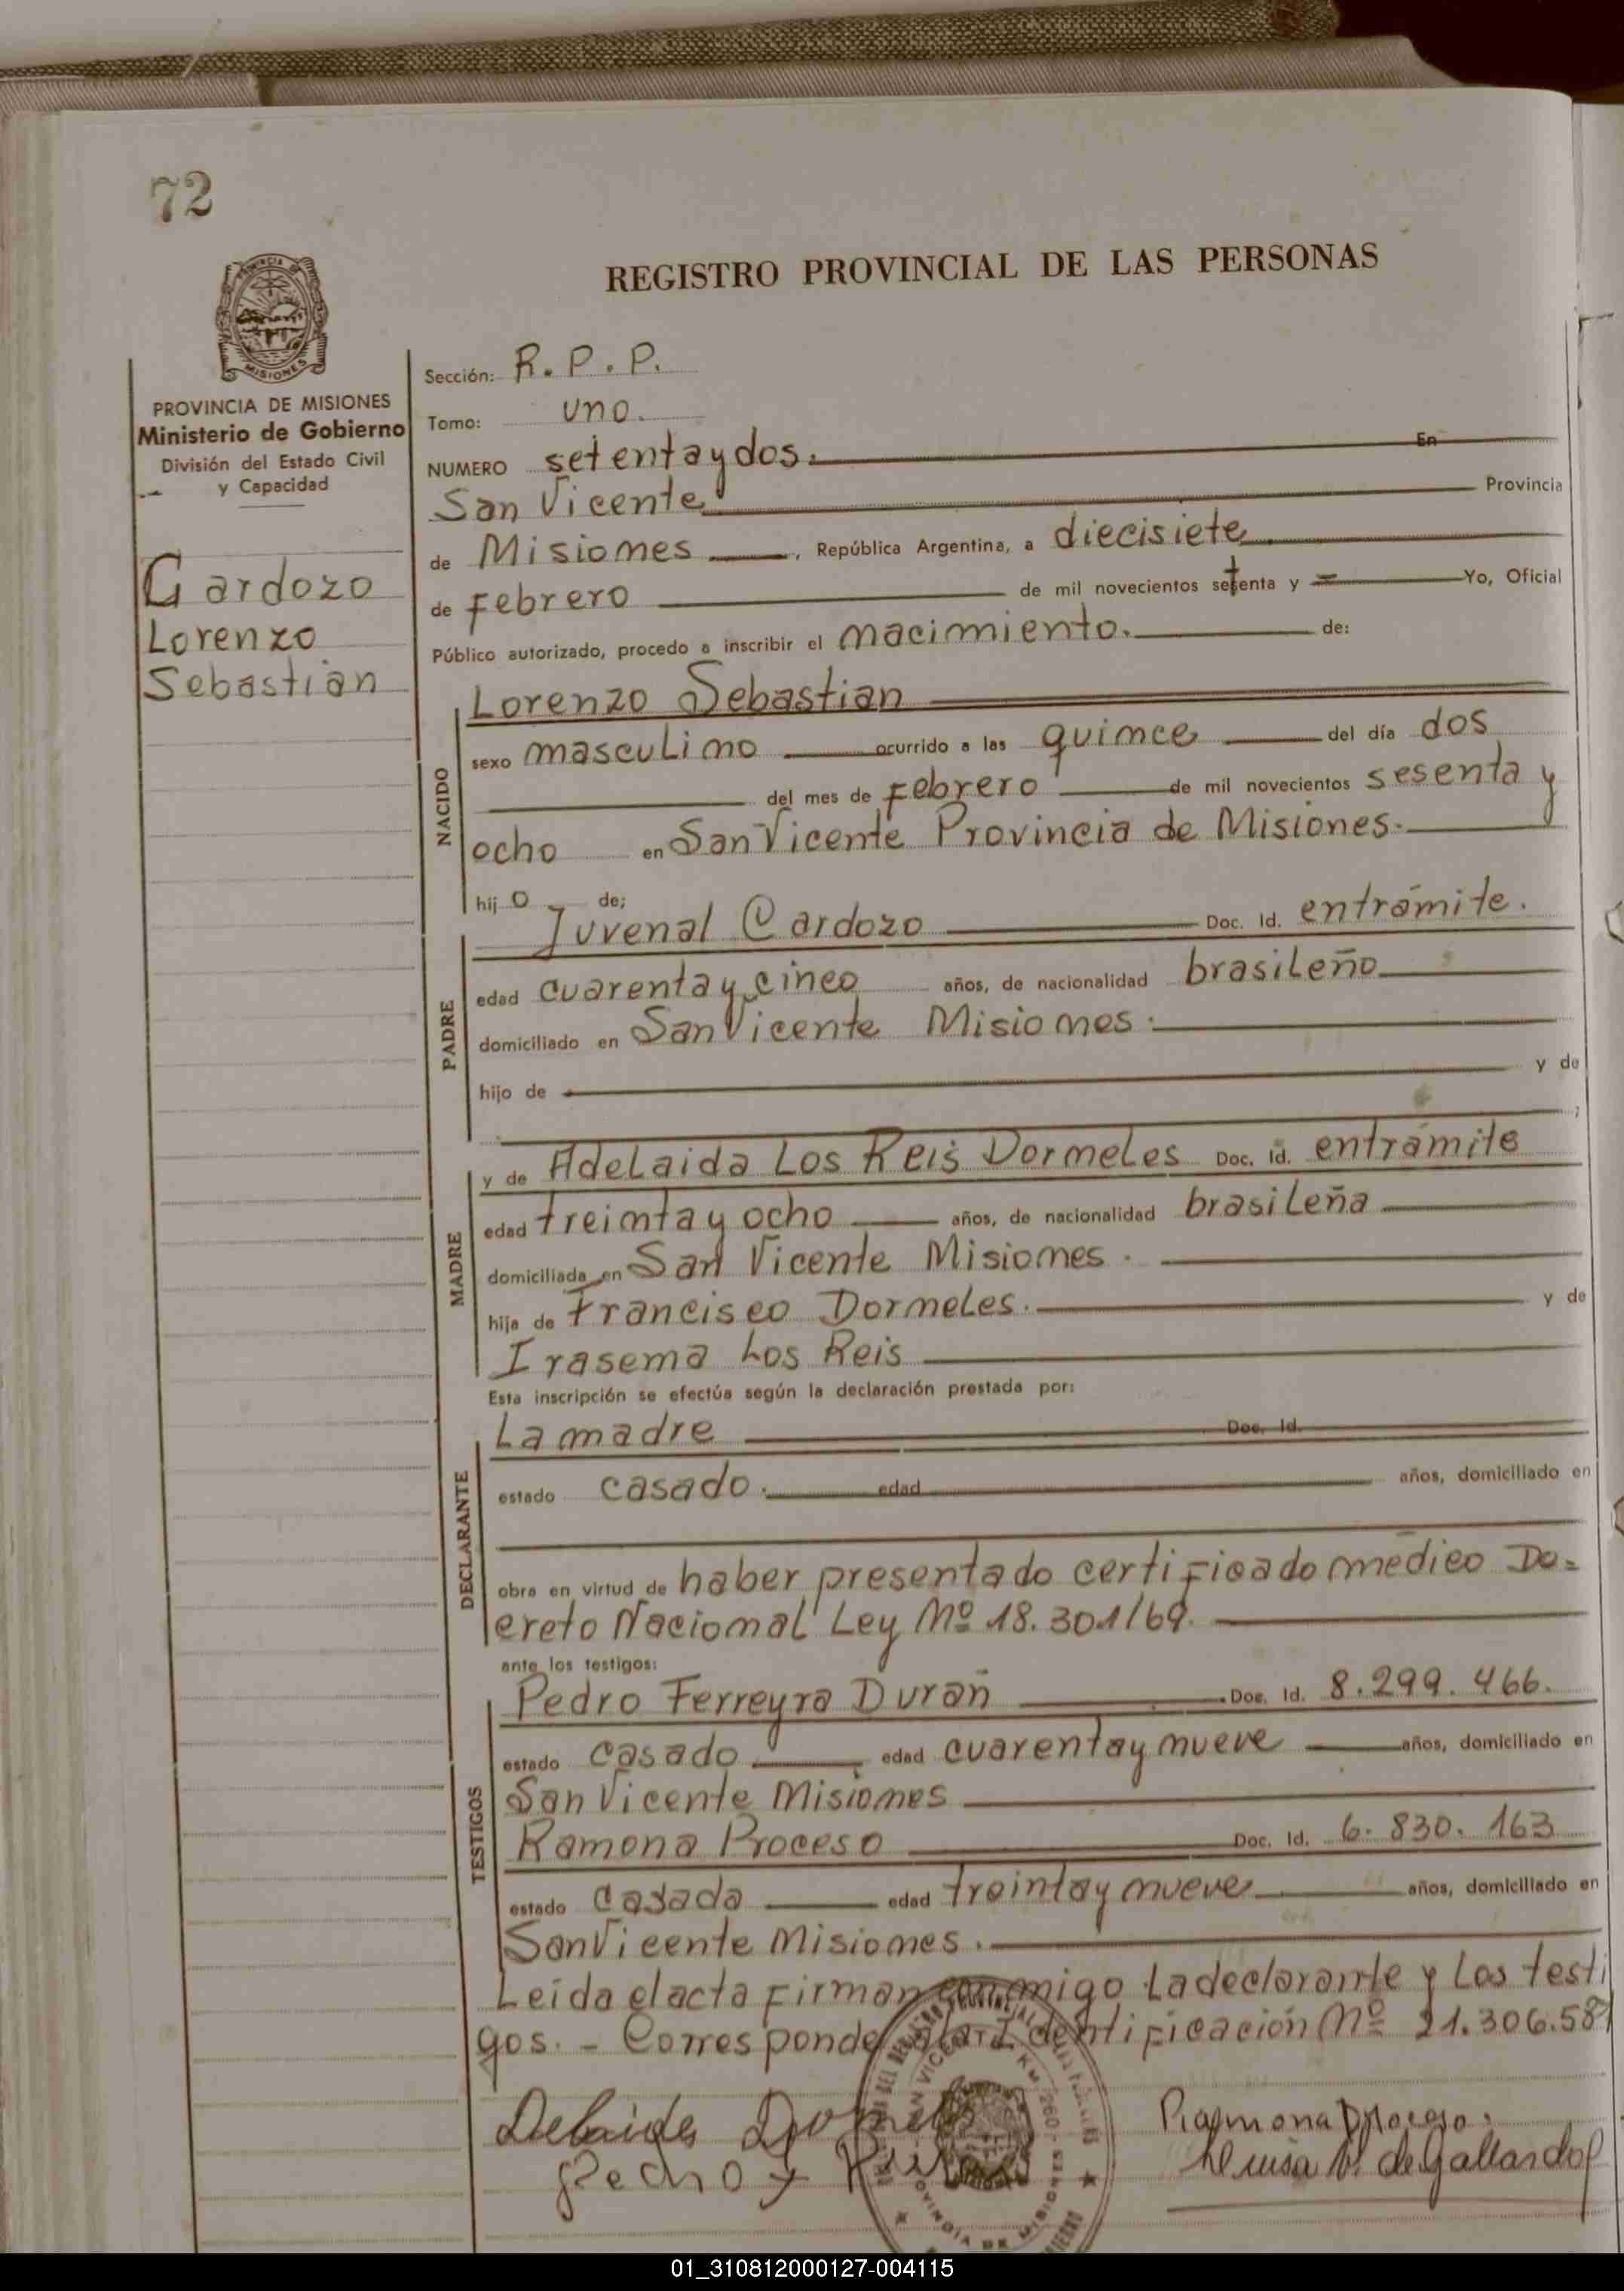 72
REGISTRO PROVINCIAL DE LAS PERSONAS
MISIONES
PROVINCIA DE MISIONES
Ministerio de Gobierno
División del Estado Civil
y Capacidad
Cardozo
Lorenzo
Sebastian
Sección: R. P. P.
Tomo: uno.
NUMERO setenta y dos. En
San Vicente Provincia
de Misiones, República Argentina, a diecisiete
de Febrero de mil novecientos setenta y = Yo, Oficial
Público autorizado, procedo a inscribir el nacimiento. de:
NACIDO
Lorenzo Sebastian
sexo masculino ocurrido a las quince del día dos
del mes de Febrero de mil novecientos sesenta y
ocho en San Vicente Provincia de Misiones.
hijo de;
PADRE
Juvenal Cardozo Doc. Id. entrámite.
edad cuarenta y cinco años, de nacionalidad brasileño
domiciliado en San Vicente Misiones.
hijo de y de
MADRE
y de Adelaida Los Reis Dormeles Doc. Id. entrámite
edad treinta y ocho años, de nacionalidad brasileña
domiciliada en San Vicente Misiones.
hija de Francisco Dormeles. y de
Irasema Los Reis
Esta inscripción se efectúa según la declaración prestada por:
DECLARANTE
La madre Doc. Id.
estado casado. edad años, domiciliado en
obra en virtud de haber presentado certificado medico De=
creto Nacional Ley Nº 18.301/69.
ante los testigos:
TESTIGOS
Pedro Ferreyra Durañ Doc. Id. 8.299.466.
estado casado edad cuarenta y nueve años, domiciliado en
San Vicente Misiones
Ramona Proceso Doc. Id. 6.830.163
estado casada edad treinta y nueve años, domiciliado en
San Vicente Misiones.
Leida el acta Firman conmigo La declarante y Los testi
gos. - Corresponde a la Identificación Nº 21.306.58
Ramona Proceso.
de Gallardo
01_310812000127-004115